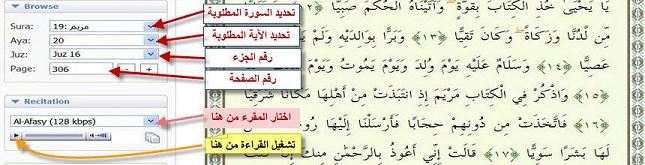 Browse
Sura: 19: مريم
Aya: 20
Juz: Juz 16
Page: 306 - +
Recitation
Al-Afasy (128 kbps)
تحديد السورة المطلوبة
تحديد الآية المطلوبة
رقم الجزء
رقم الصفحة
اختار المقرء من هنا
تشغيل القراءة من هنا
يَا يَحْيَىٰ خُذِ الْكِتَابَ بِقُوَّةٍ ۖ وَآتَيْنَاهُ الْحُكْمَ صَبِيًّا
مِّن لَّدُنَّا وَزَكَاةً ۖ وَكَانَ تَقِيًّا ﴿١٣﴾ وَبَرًّا بِوَالِدَيْهِ وَلَمْ
عَصِيًّا ﴿١٤﴾ وَسَلَامٌ عَلَيْهِ يَوْمَ وُلِدَ وَيَوْمَ يَمُوتُ وَيَوْمَ
﴿١٥﴾ وَاذْكُرْ فِي الْكِتَابِ مَرْيَمَ إِذِ انتَبَذَتْ مِنْ أَهْلِهَا مَكَانًا شَرْقِيًّا
﴿١٦﴾ فَاتَّخَذَتْ مِن دُونِهِمْ حِجَابًا فَأَرْسَلْنَا إِلَيْهَا رُو
لَهَا بَشَرًا سَوِيًّا ﴿١٧﴾ قَالَتْ إِنِّي أَعُوذُ بِالرَّحْمَٰنِ مِنكَ إِن